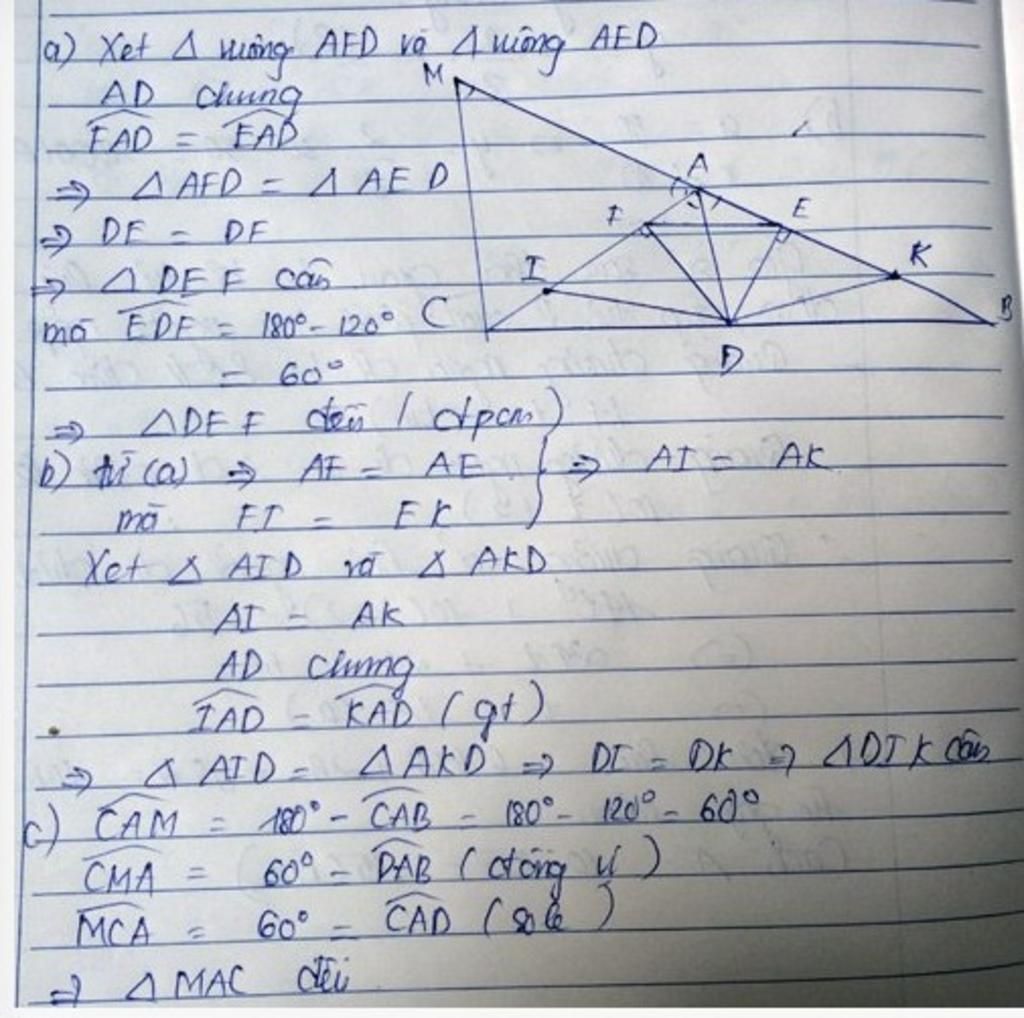 a) Xet Δ vuông AFD và Δ vuông AED
AD chung
FAD = EAD
⇒ Δ AFD = Δ AED
⇒ DE = DF
⇒ Δ DEF cân
mà EDF = 180° - 120°
= 60°
⇒ ΔDEF đều (đpcm)
b) từ (a) ⇒ AF = AE } ⇒ AI = AK
mà FI = EK
Xet Δ AID và Δ AKD
AI = AK
AD chung
IAD = KAD (gt)
⇒ Δ AID = Δ AKD ⇒ DI = DK ⇒ ΔDIK cân
c) CAM = 180° - CAB = 180° - 120° = 60°
CMA = 60° = DAB (đồng vị)
MCA = 60° = CAD (so le)
⇒ Δ MAC đều
M
A
F
E
I
K
C
B
D